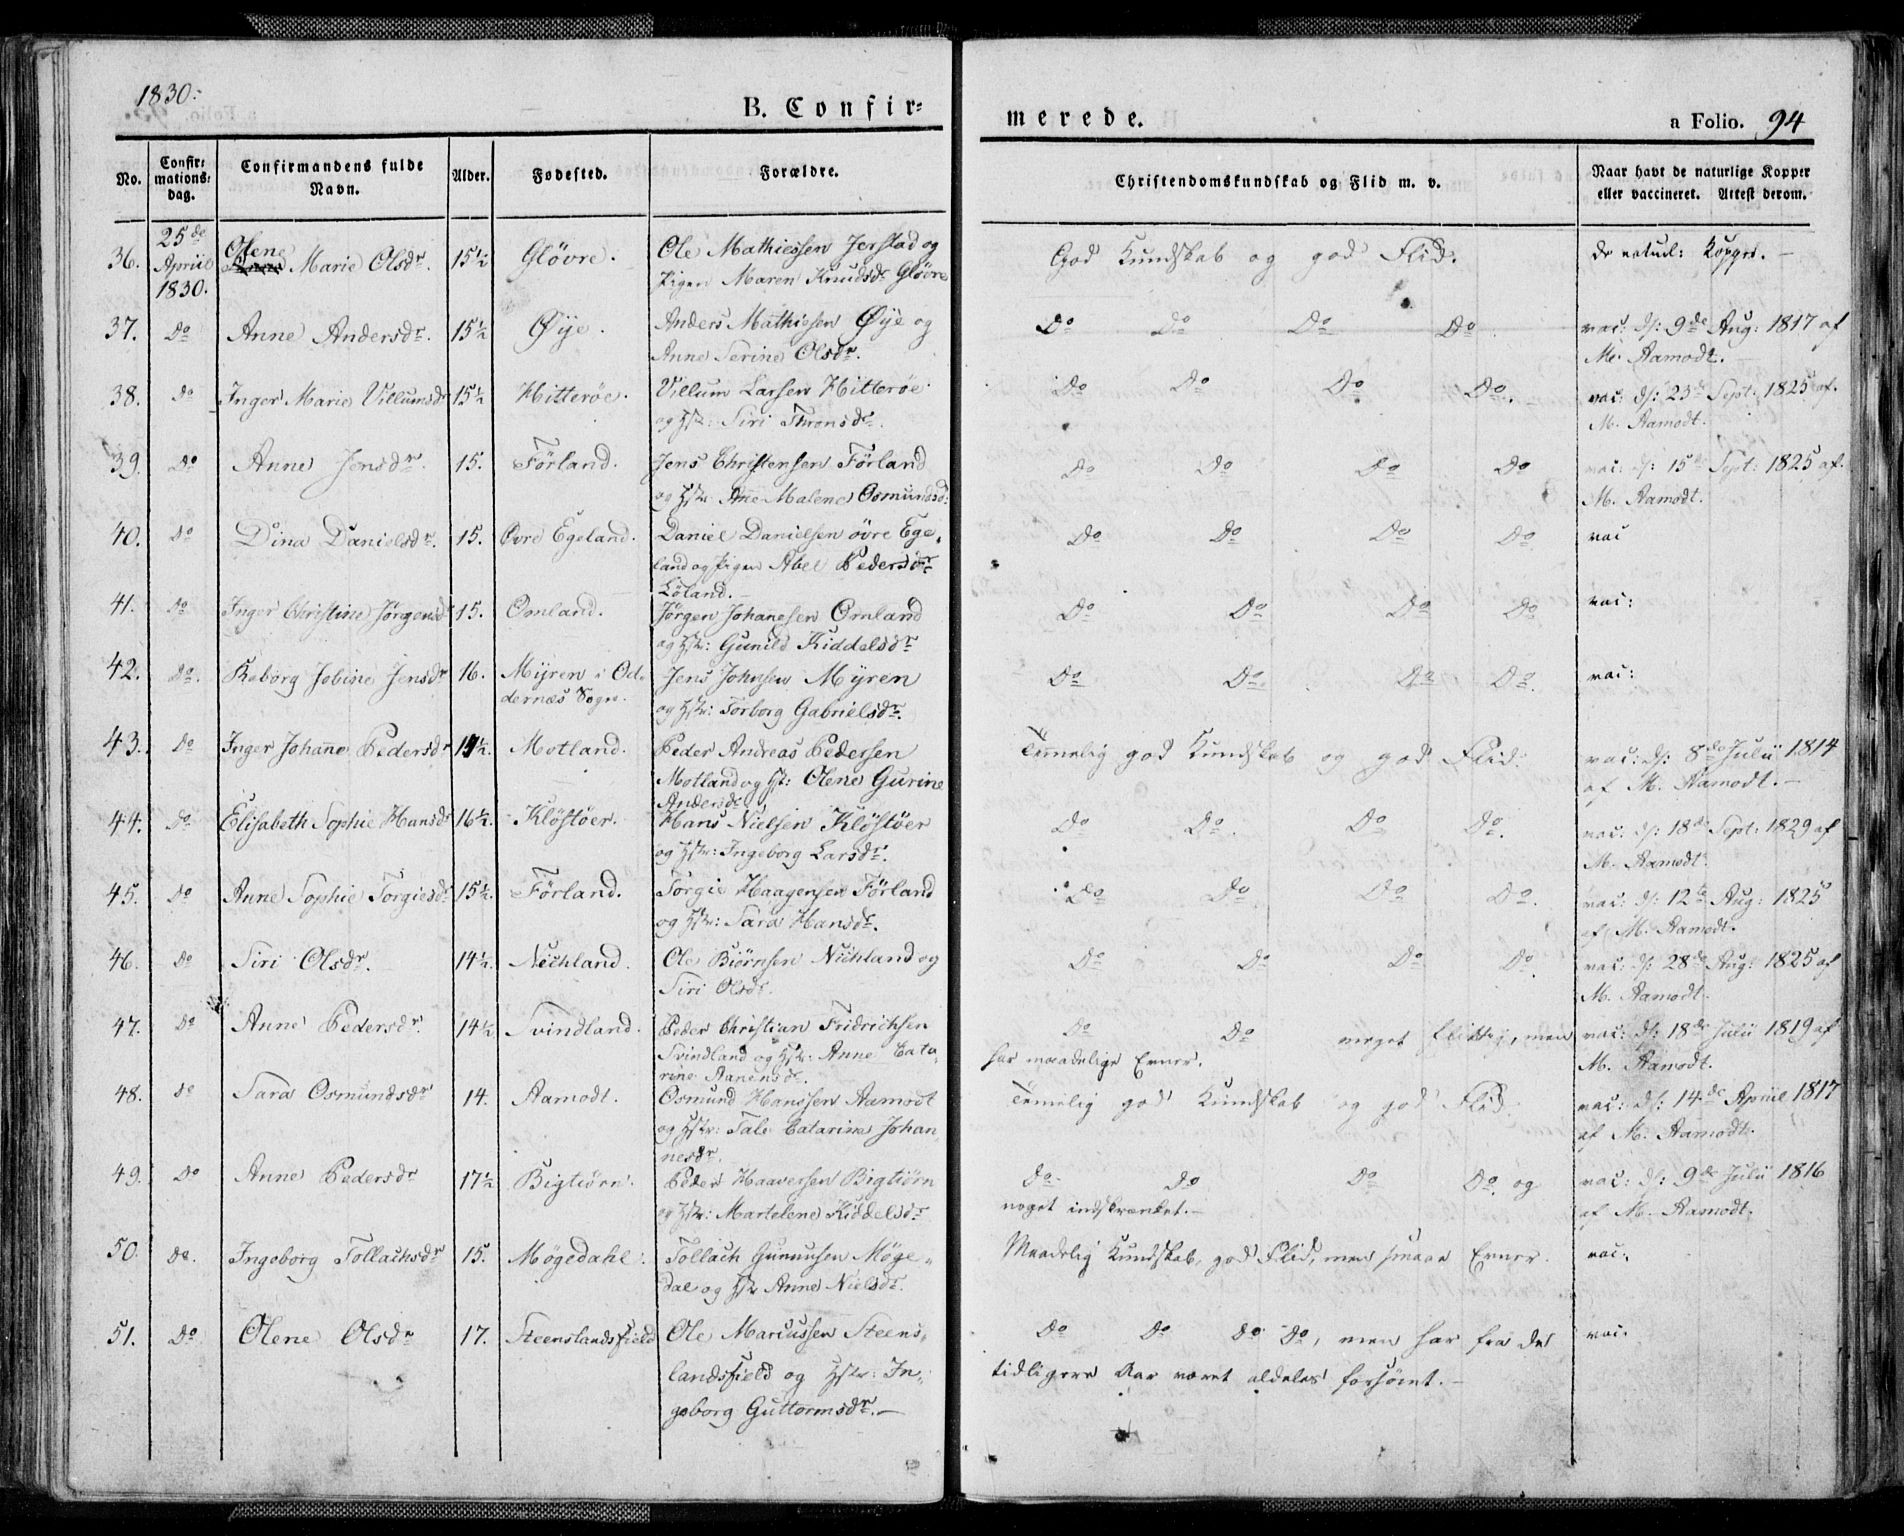 1830.
B. Confir=
merede.
a Folio. 94
No.
Confir=
mations=
dag.
Confirmandens fulde
Navn.
Alder.
Fødested.
Forældre.
Christendomskundskab og Flid m. v.
Naar havt de naturlige Kopper
eller vaccineret. Attest derom.
36. 25de April 1830. Olene Marie Olsdr. 15½ Gløvre. Ole Mathiessen Jerstad og
Pigen Maren Knudsdr Gløvre
God Kundskab og god Flid. de naturl: Kopper. –
37. Do Anne Andersdr. 15½ Øÿe. Anders Mathiesen Øÿe og
Anne Serine Olsdr.
Do Do Do Do. vac: d: 9de Aug: 1817 af
M. Aamodt. –
38. Do Inger Marie Villumsdr 15½ Hitterøe. Villum Larsen Hitterøe
og Hstr: Siri Thronsdr.
Do Do Do Do. vac: d: 23de Sept: 1825 af.
M. Aamodt.
39. Do Anne Jensdr. 15. Førland. Jens Christensen Førland
og Hstr: Ane Malene Osmundsd:
Do Do Do Do vac: d: 15de Sept: 1825 af.
M. Aamodt.
40. Do Dina Danielsdr. 15. Øvre Egeland. Daniel Danielsen øvre Ege-
land og Pigen Abel Pedersdr
Løland. –
Do Do Do Do vac
41. Do Inger Christine Jørgensd 15. Omland. Jørgen Johanesen Omland
og Hstr: Gunild Kiddelsdr
Do Do Do Do vac:
42. Do. Jobine Jensdr 16. Mÿren i Od-
dernæs Sogn. Jens Johnsen Mÿren
og Hstr: Torborg Gabrielsdr.
Do Do Do Do. vac:
43. Do Inger Johanne Pedersdr Motland. Peder Andreas Pedersen
Motland og Hst: Olene Gurine
Andersdr
Temelig god Kundskab og god Flid. vac: d: 8de Julii 1814
af M. Aamodt. –
44. Do Elisabeth Sophie Hansdr 16½. Kløstøer. Hans Nielsen Kløstøer
og Hstr: Ingeborg Larsdr.
Do Do. Do Do. vac: d: 18de Sept: 1829 af
M. Aamodt.
45. Do Anne Sophie Torgiesdr 15½. Førland. Torgie Haagensen Førland
og Hstr: Sara Hansdr.
Do Do. Do Do. vac: d: 12te Aug: 1825
af M. Aamodt.
46. Do Siri Olsdr. 14½. Nichland. Ole Biørnsen Nichland og
Siri Olsdr.
Do Do Do Do. vac: d: 28de Aug: 1825 af
M. Aamodt.
47. Do Anne Pedersdr. 14½ Svindland. Peder Christian Fridrichsen
Svindland og Hstr: Anne Cata-
rine Aanensdr.
Do Do meget flittig, men
har maadelige Evner.
vac: d: 18de Julii 1819 af
M. Aamodt.
48. Do Sara Osmundsdr 14. Aamodt. Osmund Hanssen Aamodt
og Hstr: Tale Catarina Johan-
nesdr.
Temelig god Kundskab og god Flid. vac: d: 14de April 1817
af M. Aamodt.
49. Do Anne Pedersdr 17½ Bigtiørn. Peder Haaversen Bigtiørn
og Hstr: Martelene Kiddelsdr
Do Do Do Do. og
noget indskrænket. –
vac: d: 9de Julii 1816
af M. Aamodt.
50. Do. Ingeborg Tollachsdr 15. Møgedahl. Tollach Gunnusen Møge-
dal og Hstr Anne Nielsdr.
Maadelig Kundskab, god Flid, men smaae Evner. vac.
51. Do Olene Olsdr 17. Steenslandsfield Ole Marcussen Steens-
landsfield og Hstr: In-
geborg Guttormsdr. –
Do Do Do Do, men har fra de
tidligere Aar været aldeles forsømt. –
vac.